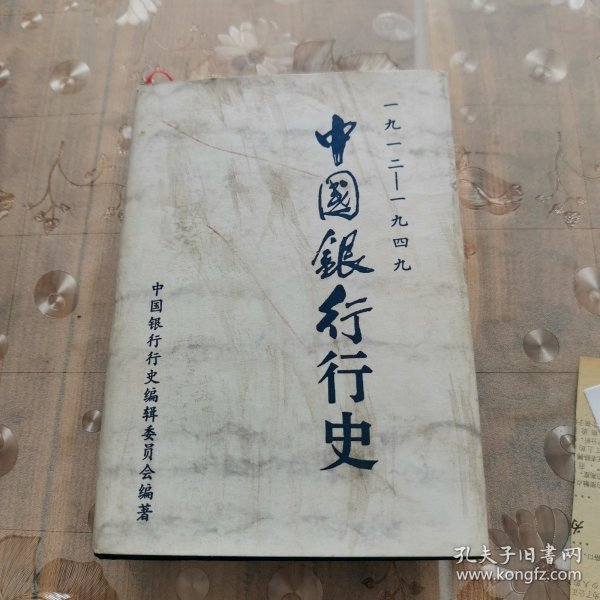 一九一二—一九四九
中國銀行行史
中国银行行史编辑委员会编著
孔夫子旧书网
www.kongfz.com
为